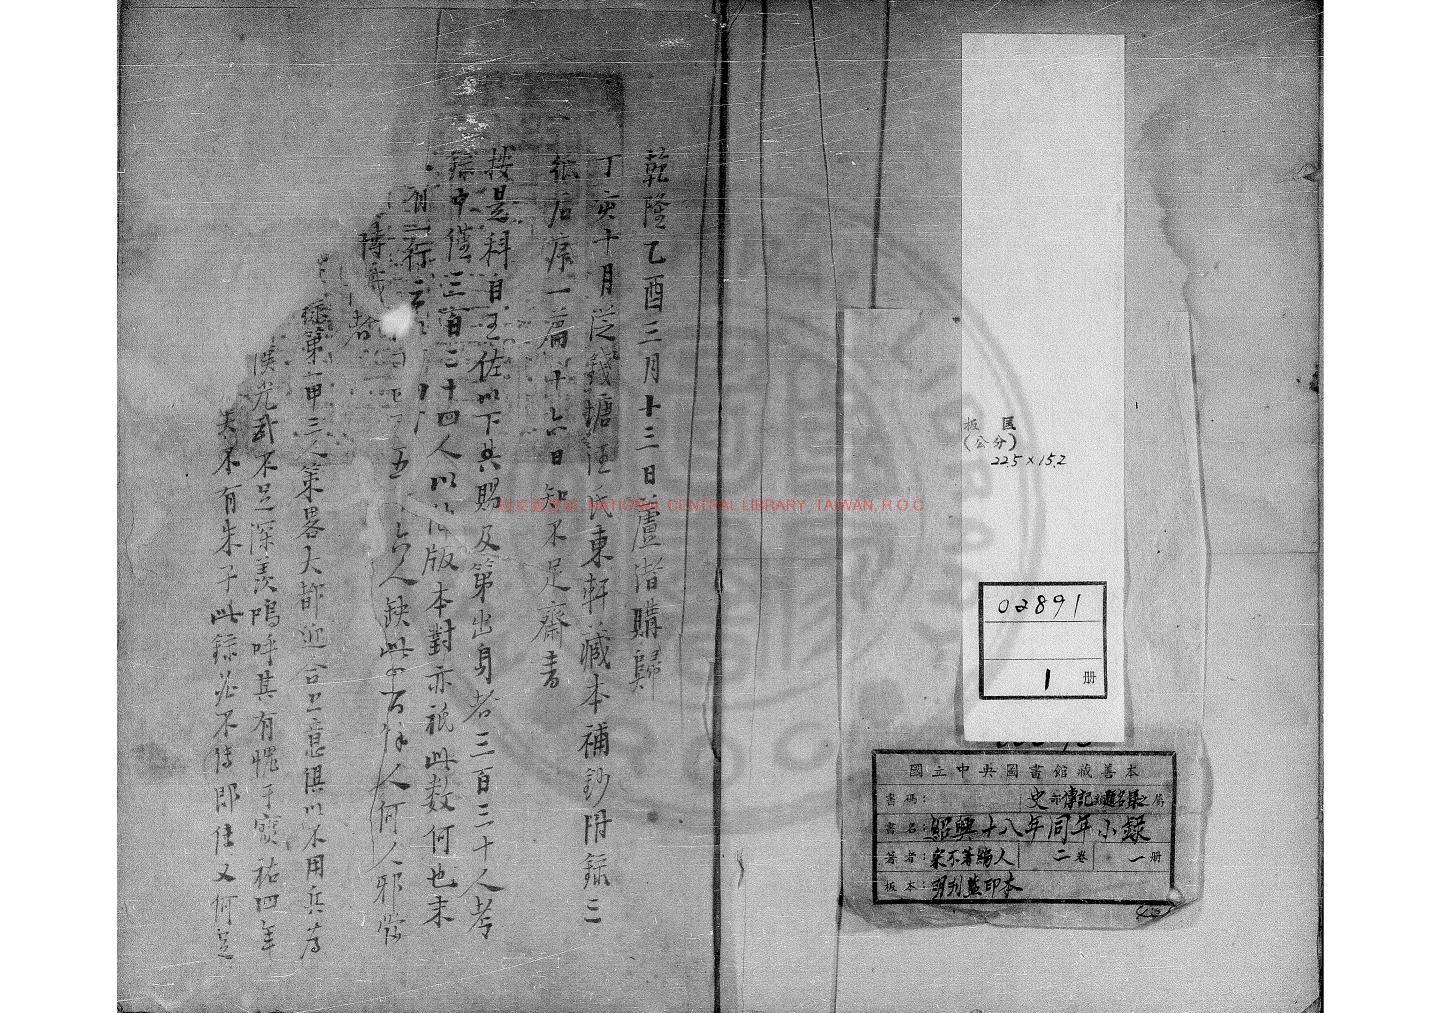 板匡
(公分)
22.5×15.2
02891
1 册
國立中央圖書館藏善本
書碼: 史部傳記類題名錄之屬
書名: 紹興十八年同年小錄
著者: 宋不著編人 二卷 一册
板本: 明刋藍印本
乾隆乙酉三月十三日盧潜購歸
丁亥十月從錢塘汪氏東軒藏本補鈔附錄二
紙后序一篇十六日知不足齋書
按是科自王佐以下共賜及第出身者三百三十人考
錄中僅三百二十四人以 版本對亦祇此數何也末
有一行云
五 六人缺此 百 人何人邪
者
第一甲三人策畧大都迎合上意俱以不用兵為
漢光武不足深羨嗚呼其有愧于寶祐四年
矣不有朱子此錄必不傳即佳又何足
國家圖書館, NATIONAL CENTRAL LIBRARY, TAIWAN, R.O.C